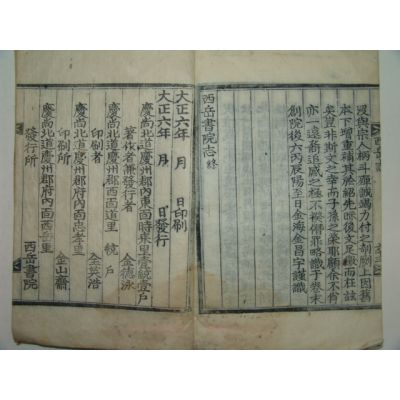 役與宗人柄斗殫誠竭力付之剞劂上因舊
本下增重補其於紹先啓後文足徵而在玆
矣豈非斯文之幸而子孫之榮耶顧吞不肖
亦一遠裔追感之極不揆僭罪略識于卷末
創院後六丙辰陽至日金海金昌宇謹識
西岳書院志終
大正六年 月 日印刷
大正六年 月 日發行
慶尙北道慶州郡內東面時來里壹統壹戶
著作者兼發行者 金德泳
慶尙北道慶州郡府內面西道里 統戶
印刷者 金英浩
慶尙北道慶州郡府內面忠孝里
印刷所 金山齋
慶尙北道慶州郡府內面西岳里
發行所 西岳書院